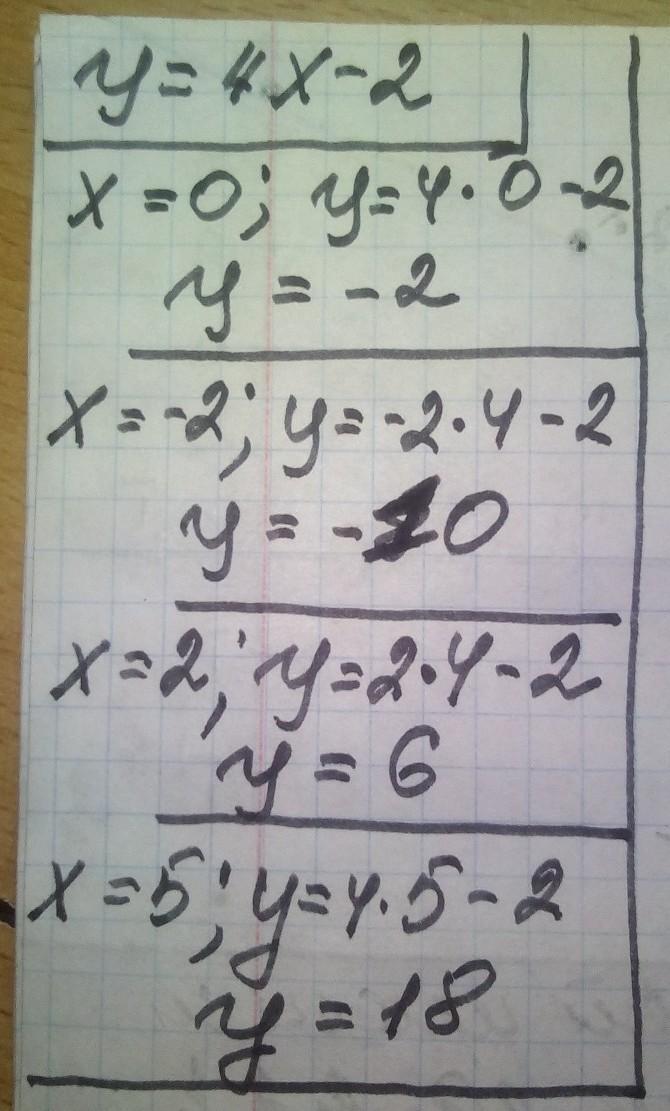 y = 4x - 2
x = 0; y = 4 · 0 - 2
y = -2
x = -2; y = -2 · 4 - 2
y = -10
x = 2; y = 2 · 4 - 2
y = 6
x = 5; y = 4 · 5 - 2
y = 18